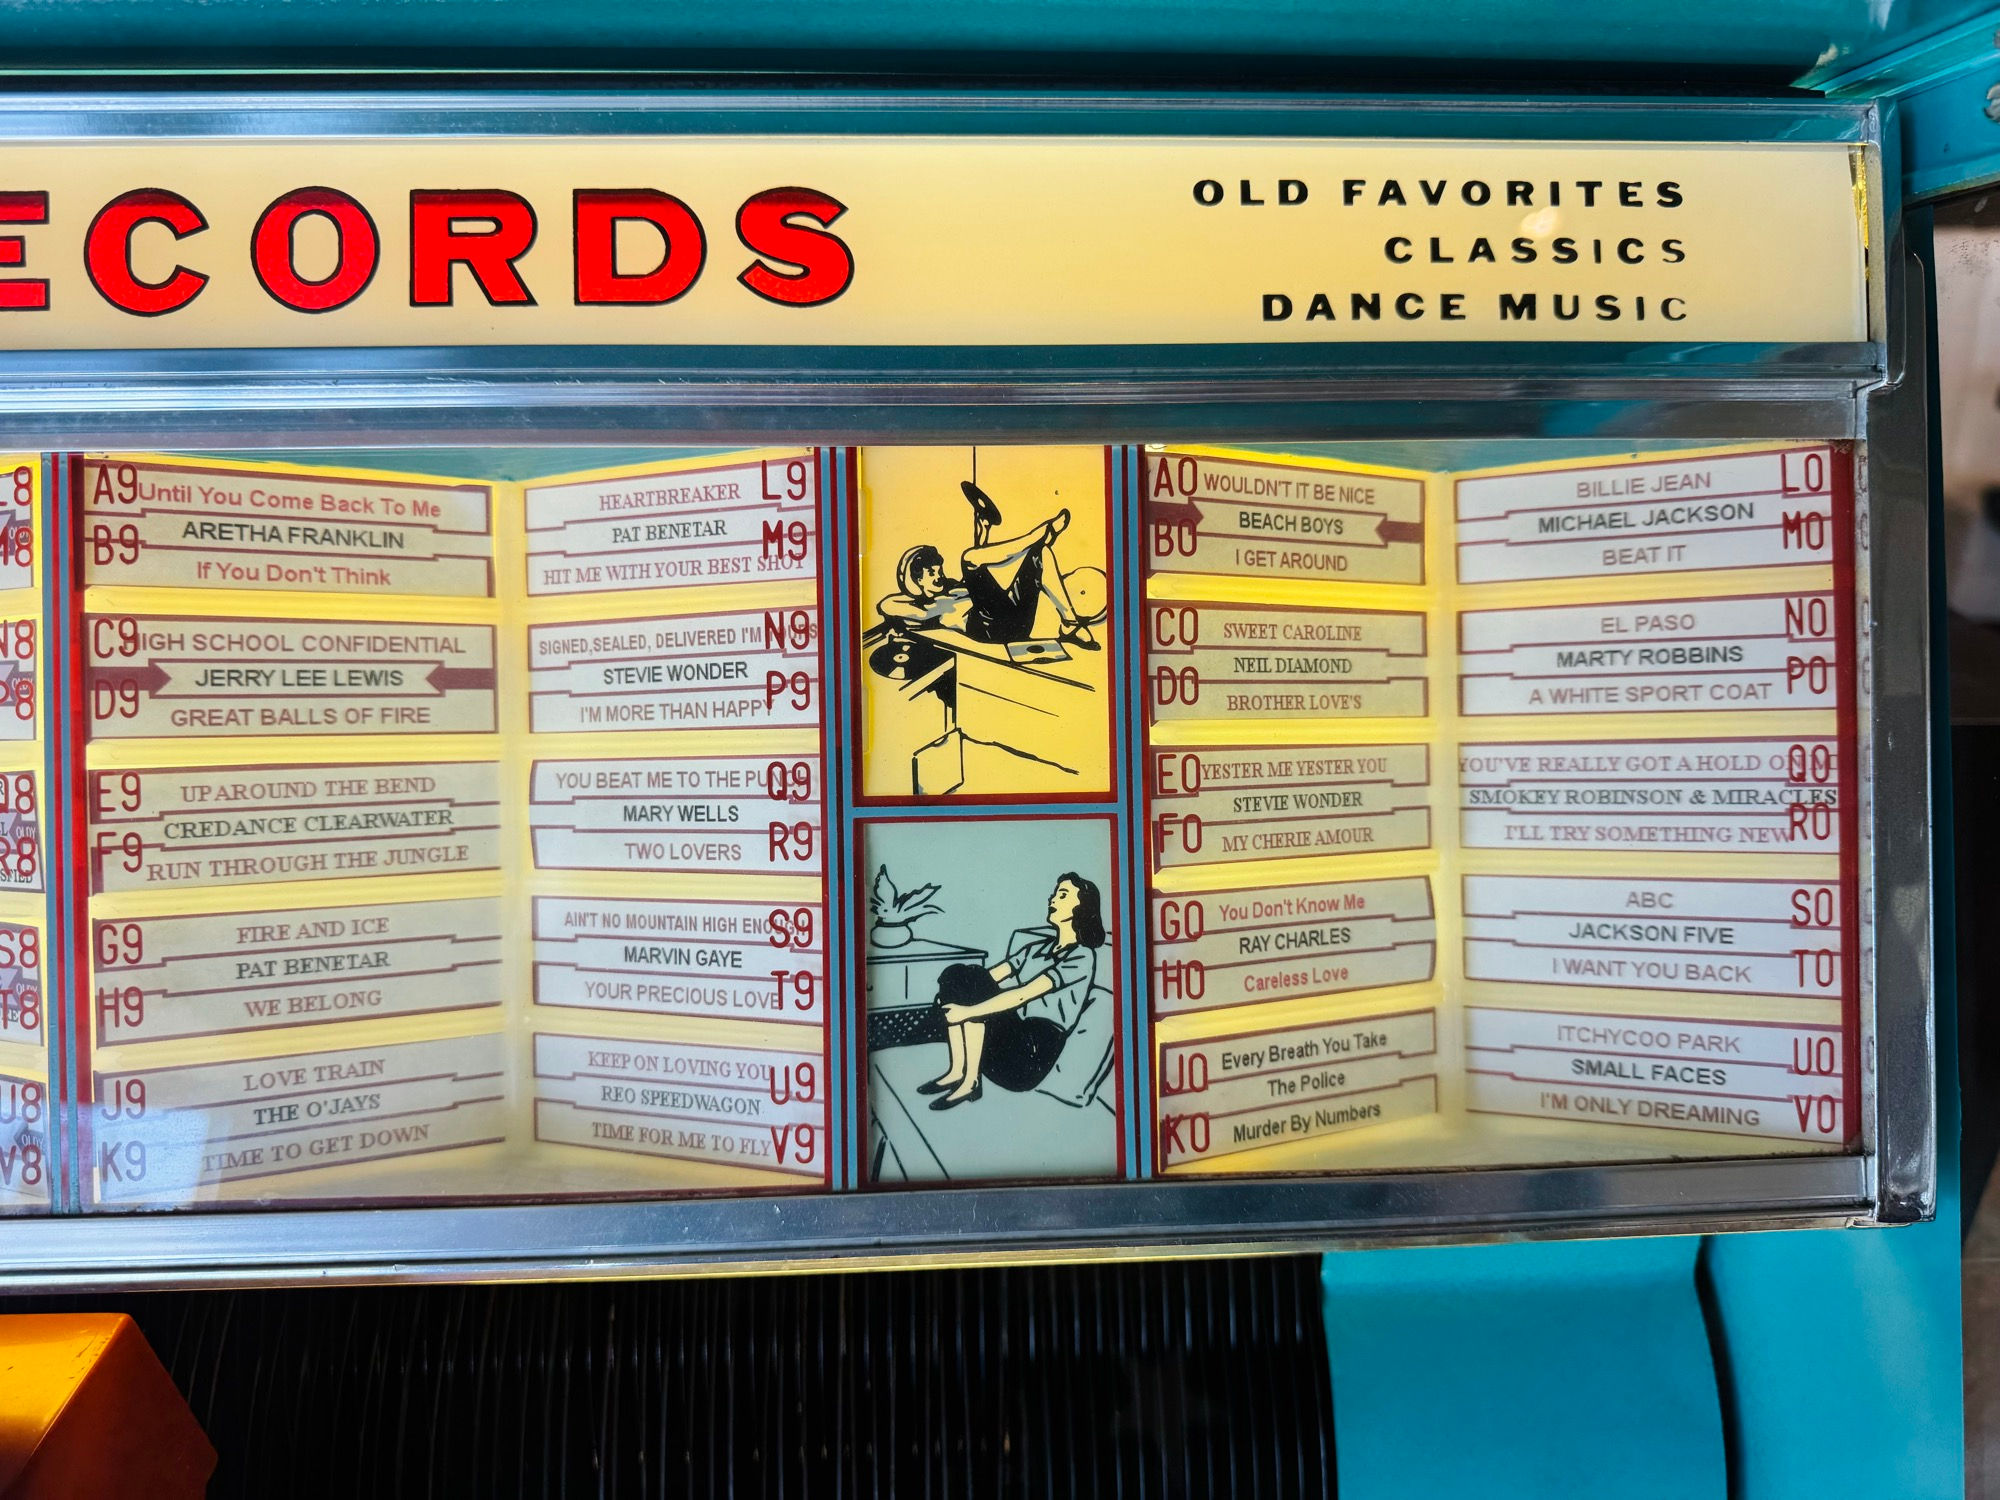 ECORDS
OLD FAVORITES
CLASSICS
DANCE MUSIC
L8
N8
P8
Q8
R8
S8
T8
U8
V8
A9 Until You Come Back To Me
ARETHA FRANKLIN
B9 If You Don't Think
C9 HIGH SCHOOL CONFIDENTIAL
JERRY LEE LEWIS
D9 GREAT BALLS OF FIRE
E9 UP AROUND THE BEND
CREDANCE CLEARWATER
F9 RUN THROUGH THE JUNGLE
G9 FIRE AND ICE
PAT BENETAR
H9 WE BELONG
J9 LOVE TRAIN
THE O'JAYS
K9 TIME TO GET DOWN
HEARTBREAKER L9
PAT BENETAR
HIT ME WITH YOUR BEST SHOT M9
SIGNED,SEALED, DELIVERED I'M YOURS N9
STEVIE WONDER
I'M MORE THAN HAPPY P9
YOU BEAT ME TO THE PUNCH Q9
MARY WELLS
TWO LOVERS R9
AIN'T NO MOUNTAIN HIGH ENOUGH S9
MARVIN GAYE
YOUR PRECIOUS LOVE T9
KEEP ON LOVING YOU U9
REO SPEEDWAGON
TIME FOR ME TO FLY V9
A0 WOULDN'T IT BE NICE
BEACH BOYS
B0 I GET AROUND
C0 SWEET CAROLINE
NEIL DIAMOND
D0 BROTHER LOVE'S
E0 YESTER ME YESTER YOU
STEVIE WONDER
F0 MY CHERIE AMOUR
G0 You Don't Know Me
RAY CHARLES
H0 Careless Love
J0 Every Breath You Take
The Police
K0 Murder By Numbers
BILLIE JEAN L0
MICHAEL JACKSON
BEAT IT M0
EL PASO N0
MARTY ROBBINS
A WHITE SPORT COAT P0
YOU'VE REALLY GOT A HOLD ON ME Q0
SMOKEY ROBINSON & MIRACLES
I'LL TRY SOMETHING NEW R0
ABC S0
JACKSON FIVE
I WANT YOU BACK T0
ITCHYCOO PARK U0
SMALL FACES
I'M ONLY DREAMING V0